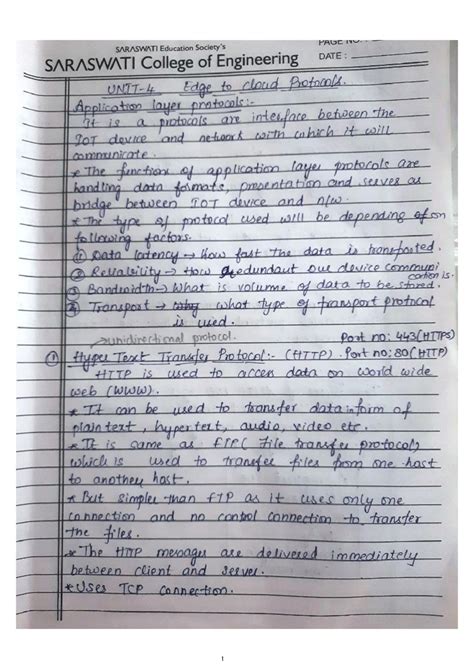 SARASWATI Education Society's
SARASWATI College of Engineering
PAGE NO.
DATE :
UNIT-4 Edge to cloud Protocols.
Application layer protocols:-
It is a protocols are interface between the
IOT device and network with which it will
communicate.
* The function of application layer protocols are
handling data formats, presentation and serves as
bridge between IOT device and n/w.
* The type of protocol used will be depending on
following factors.
① Data latency → How fast the data is transported.
② Reliability → How redundant our device communi
cation is.
③ Bandwidth → What is volume of data to be stored.
④ Transport → what type of transport protocol
is used.
→ unidirectional protocol.
Port no: 443(HTTPS)
① Hyper Text Transfer Protocol:- (HTTP). Port no: 80(HTTP)
HTTP is used to access data on World wide
web (WWW).
* It can be used to transfer data inform of
plain text, hypertext, audio, video etc.
* It is same as FTP( File transfer protocol)
which is used to transfer files from one host
to another host.
* But simpler than FTP as it uses only one
connection and no control connection to transfer
the files.
* The HTTP messages are delivered immediately
between client and server.
* Uses TCP connection.
1